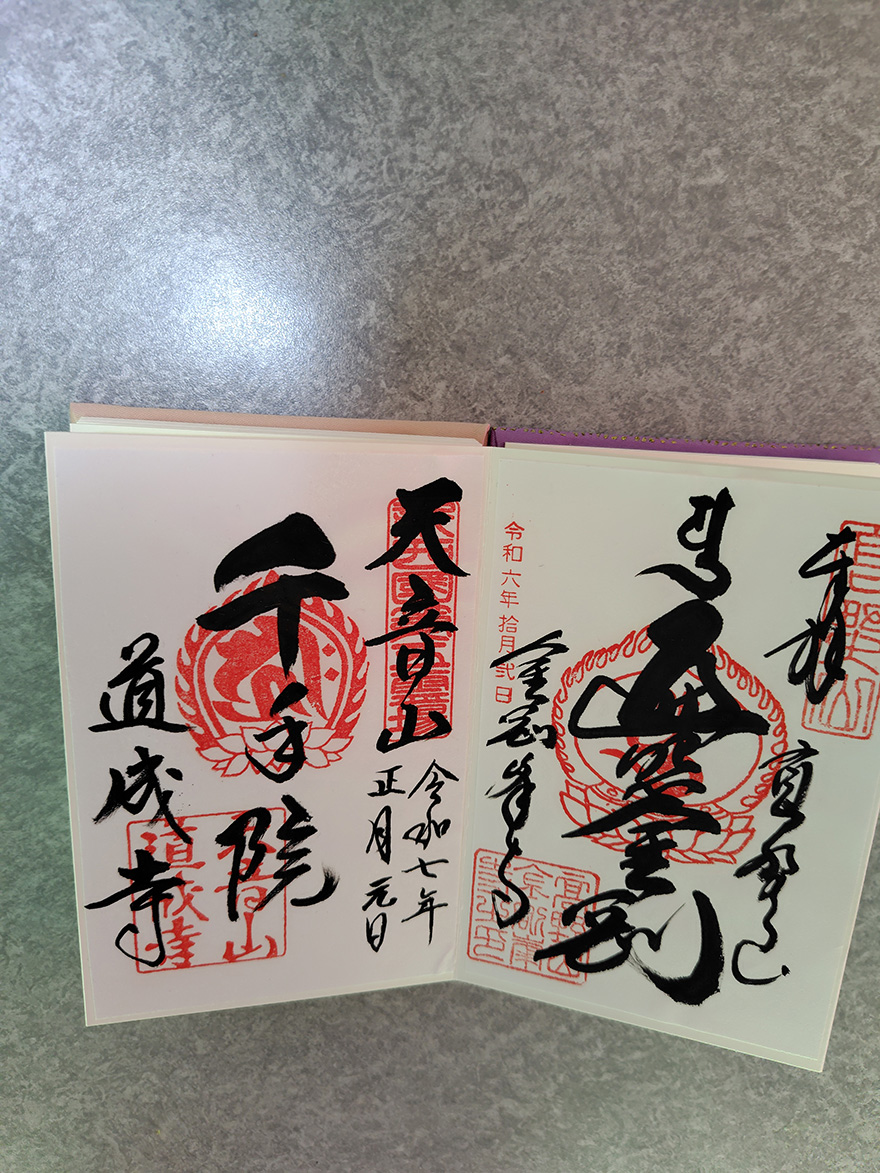 奉拝
高野山
遍照金剛
令和六年 拾月弐日
金剛峯寺
天音山
令和七年
正月元日
千手院
道成寺
天音山
道成寺